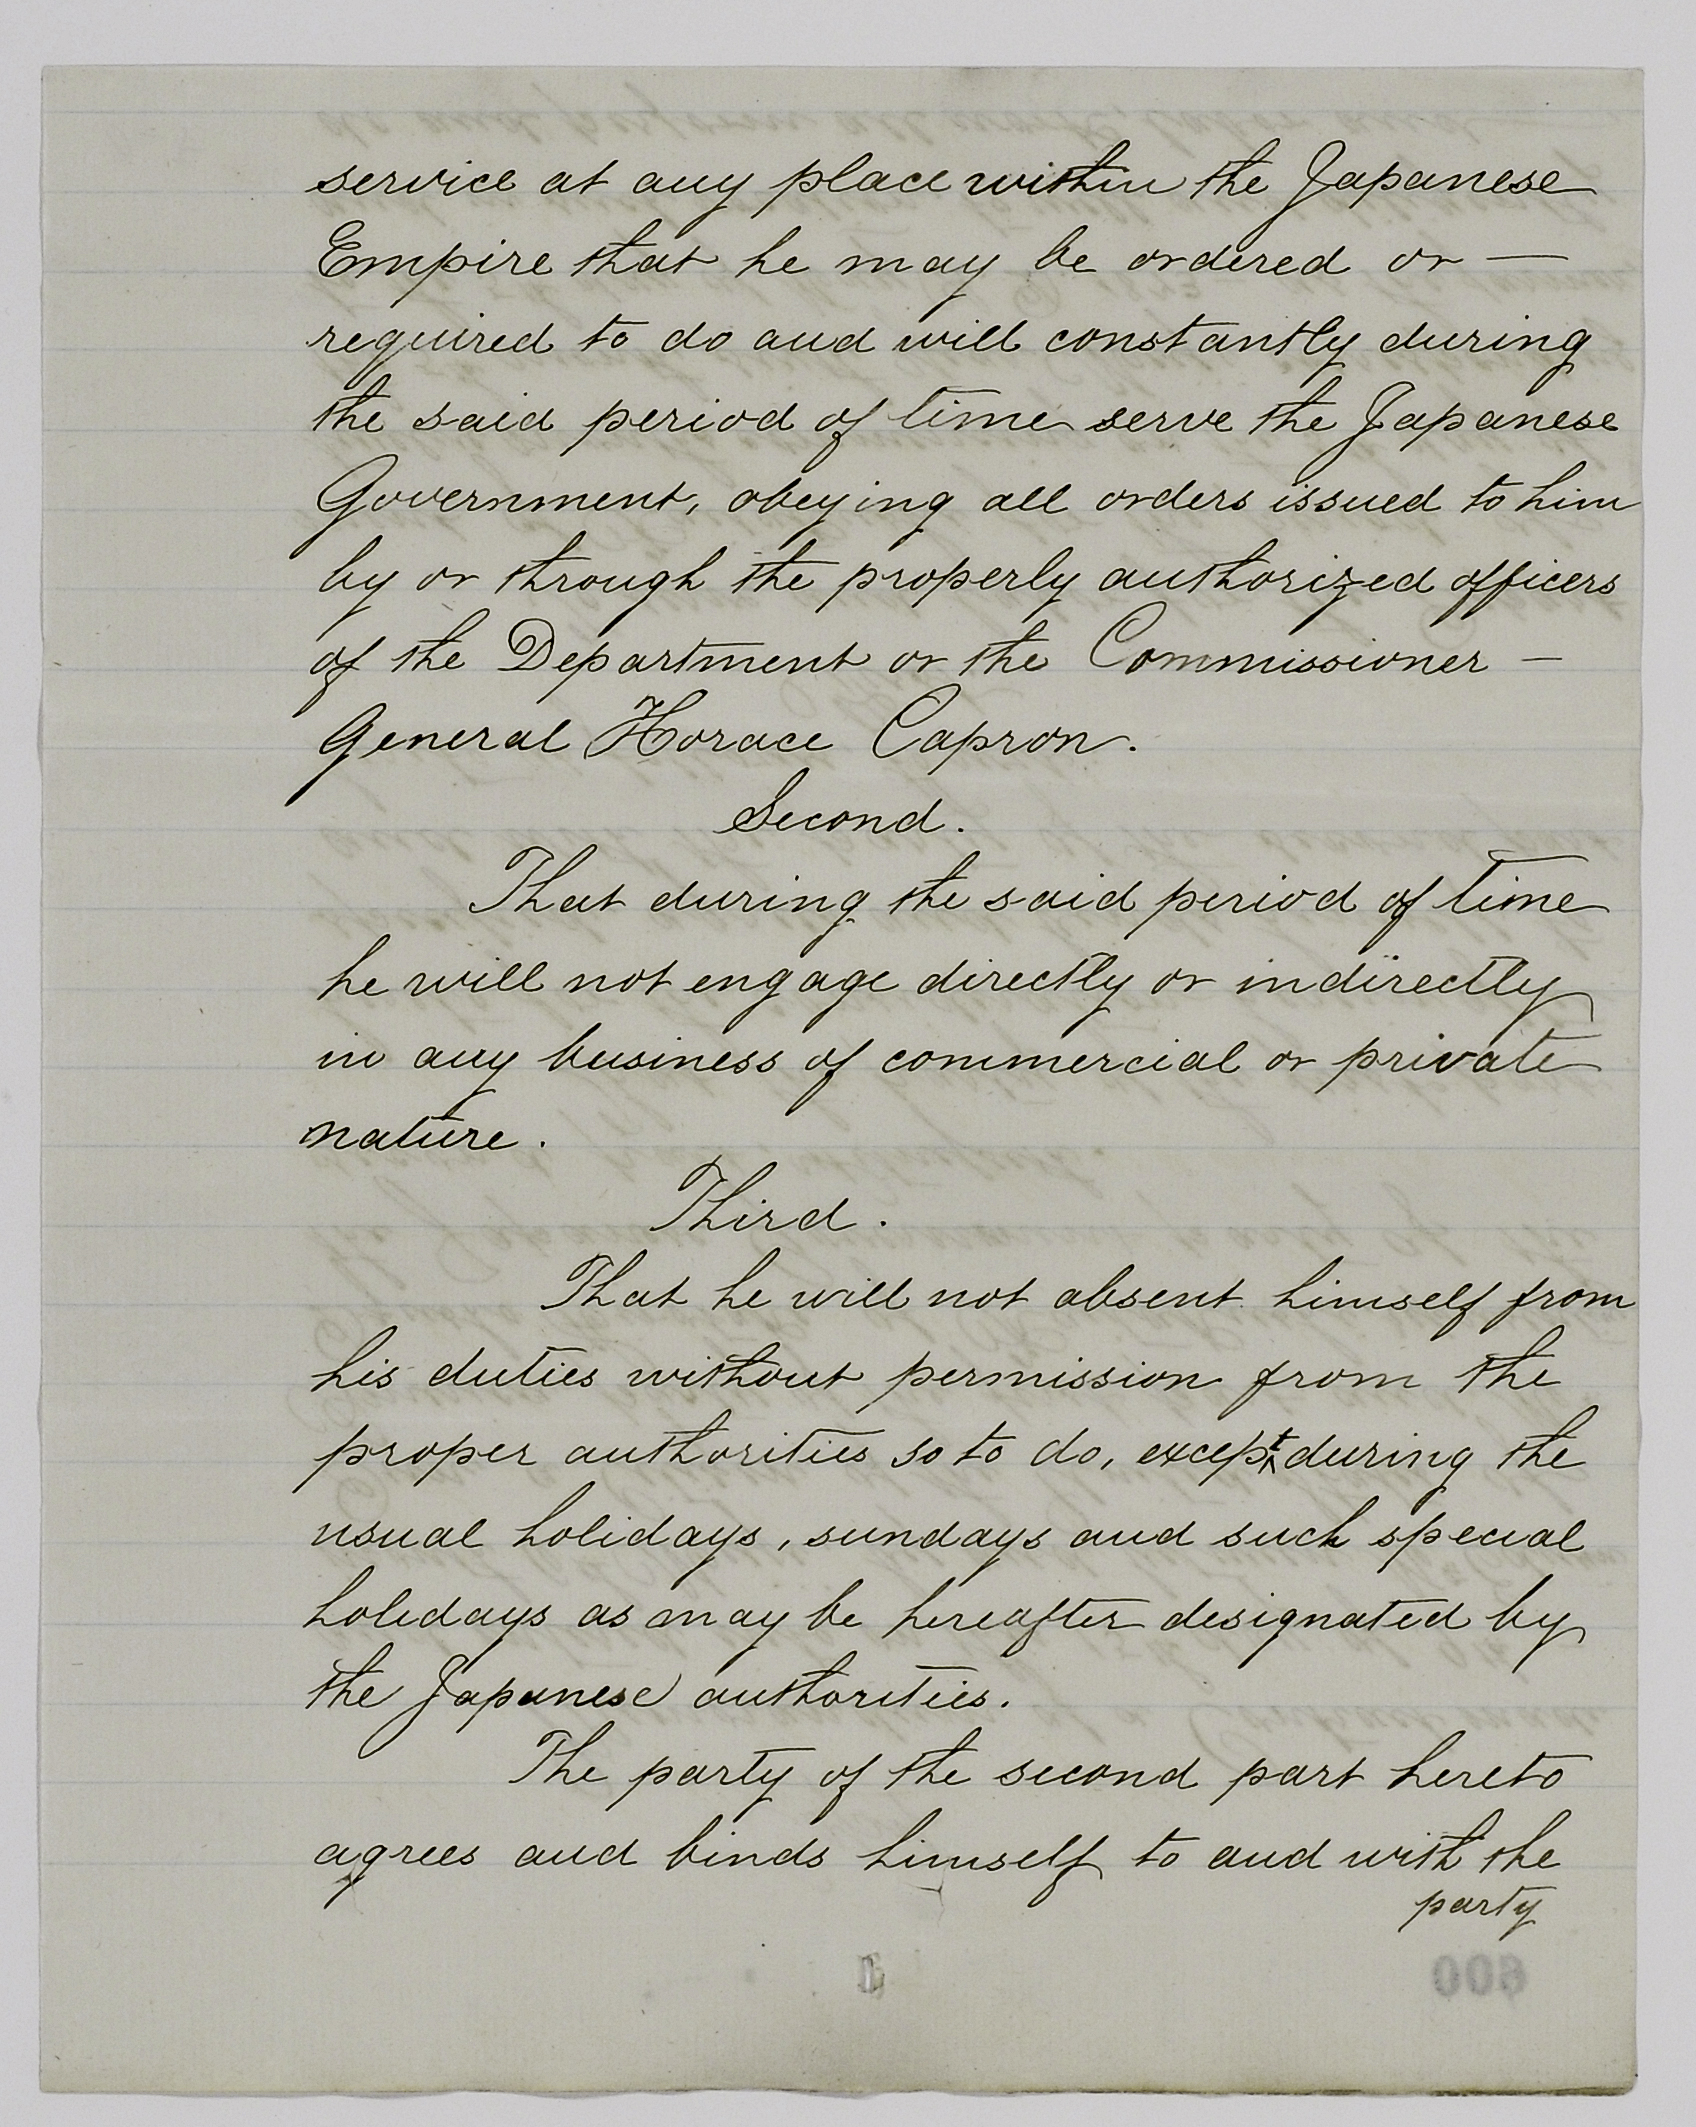 service at any place within the Japanese
Empire that he may be ordered or —
required to do and will constantly during
the said period of time serve the Japanese
Government, obeying all orders issued to him
by or through the properly authorized officers
of the Department or the Commissioner —
General Horace Capron.
Second.
That during the said period of time
he will not engage directly or indirectly
in any business of commercial or private
nature.
Third.
That he will not absent himself from
his duties without permission from the
proper authorities so to do, except during the
usual holidays, sundays and such special
holidays as may be hereafter designated by
the Japanese authorities.
The party of the second part hereto
agrees and binds himself to and with the
party